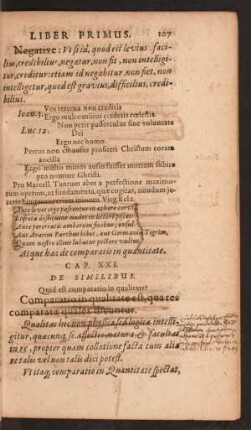 LIBER PRIMUS. 107
Negative: Vt si id, quod est levius, faci-
lius, credibilius, negatur, non fit, non intelligi-
tur, creditur: etiam id negabitur, non fiet, non
intelligetur, quod est gravius, difficilius, credi-
bilius.
Joan. 3. Vos terrena non creditis
Ergo multo minus credetis cœlestia
Luc 12. Non perit passerculus sine voluntate
Dei
Ergo nec homo.
Petrus non profiteri Christum coram
ancilla
Ergo multo minus mortem subire
pro nomine Christi.
Pro Marcell. Tantum abes a perfectione maximo-
rum operum, ut fundamenta, quæ cogitas, nondum je-
ceris. Virg. Ecl. 1.
Ante leves ergo pascentur in æthere cervi
Et freta destituent nudos in littore pisces:
Ante pererratis amborum finibus, exsul
Aut Ararim Parthus bibet, aut Germania Tigrim,
Quam nostro illius labatur pectore vultus.
Atque hæc de comparatis in quantitate.
CAP. XXI.
DE SIMILIBUS.
Quid est comparatio in qualitate?
Comparatio in qualitate est, qua res
comparatæ quales dicuntur.
Qualitas hic non physica sed logica intelli-
gitur, quacunq; sc. affectio, natura & faculta-
tu res, propter quam collatione facta cum alia
re talis vel non talis dici potest.
Vt itaq; comparatio in Quantitate spectat,